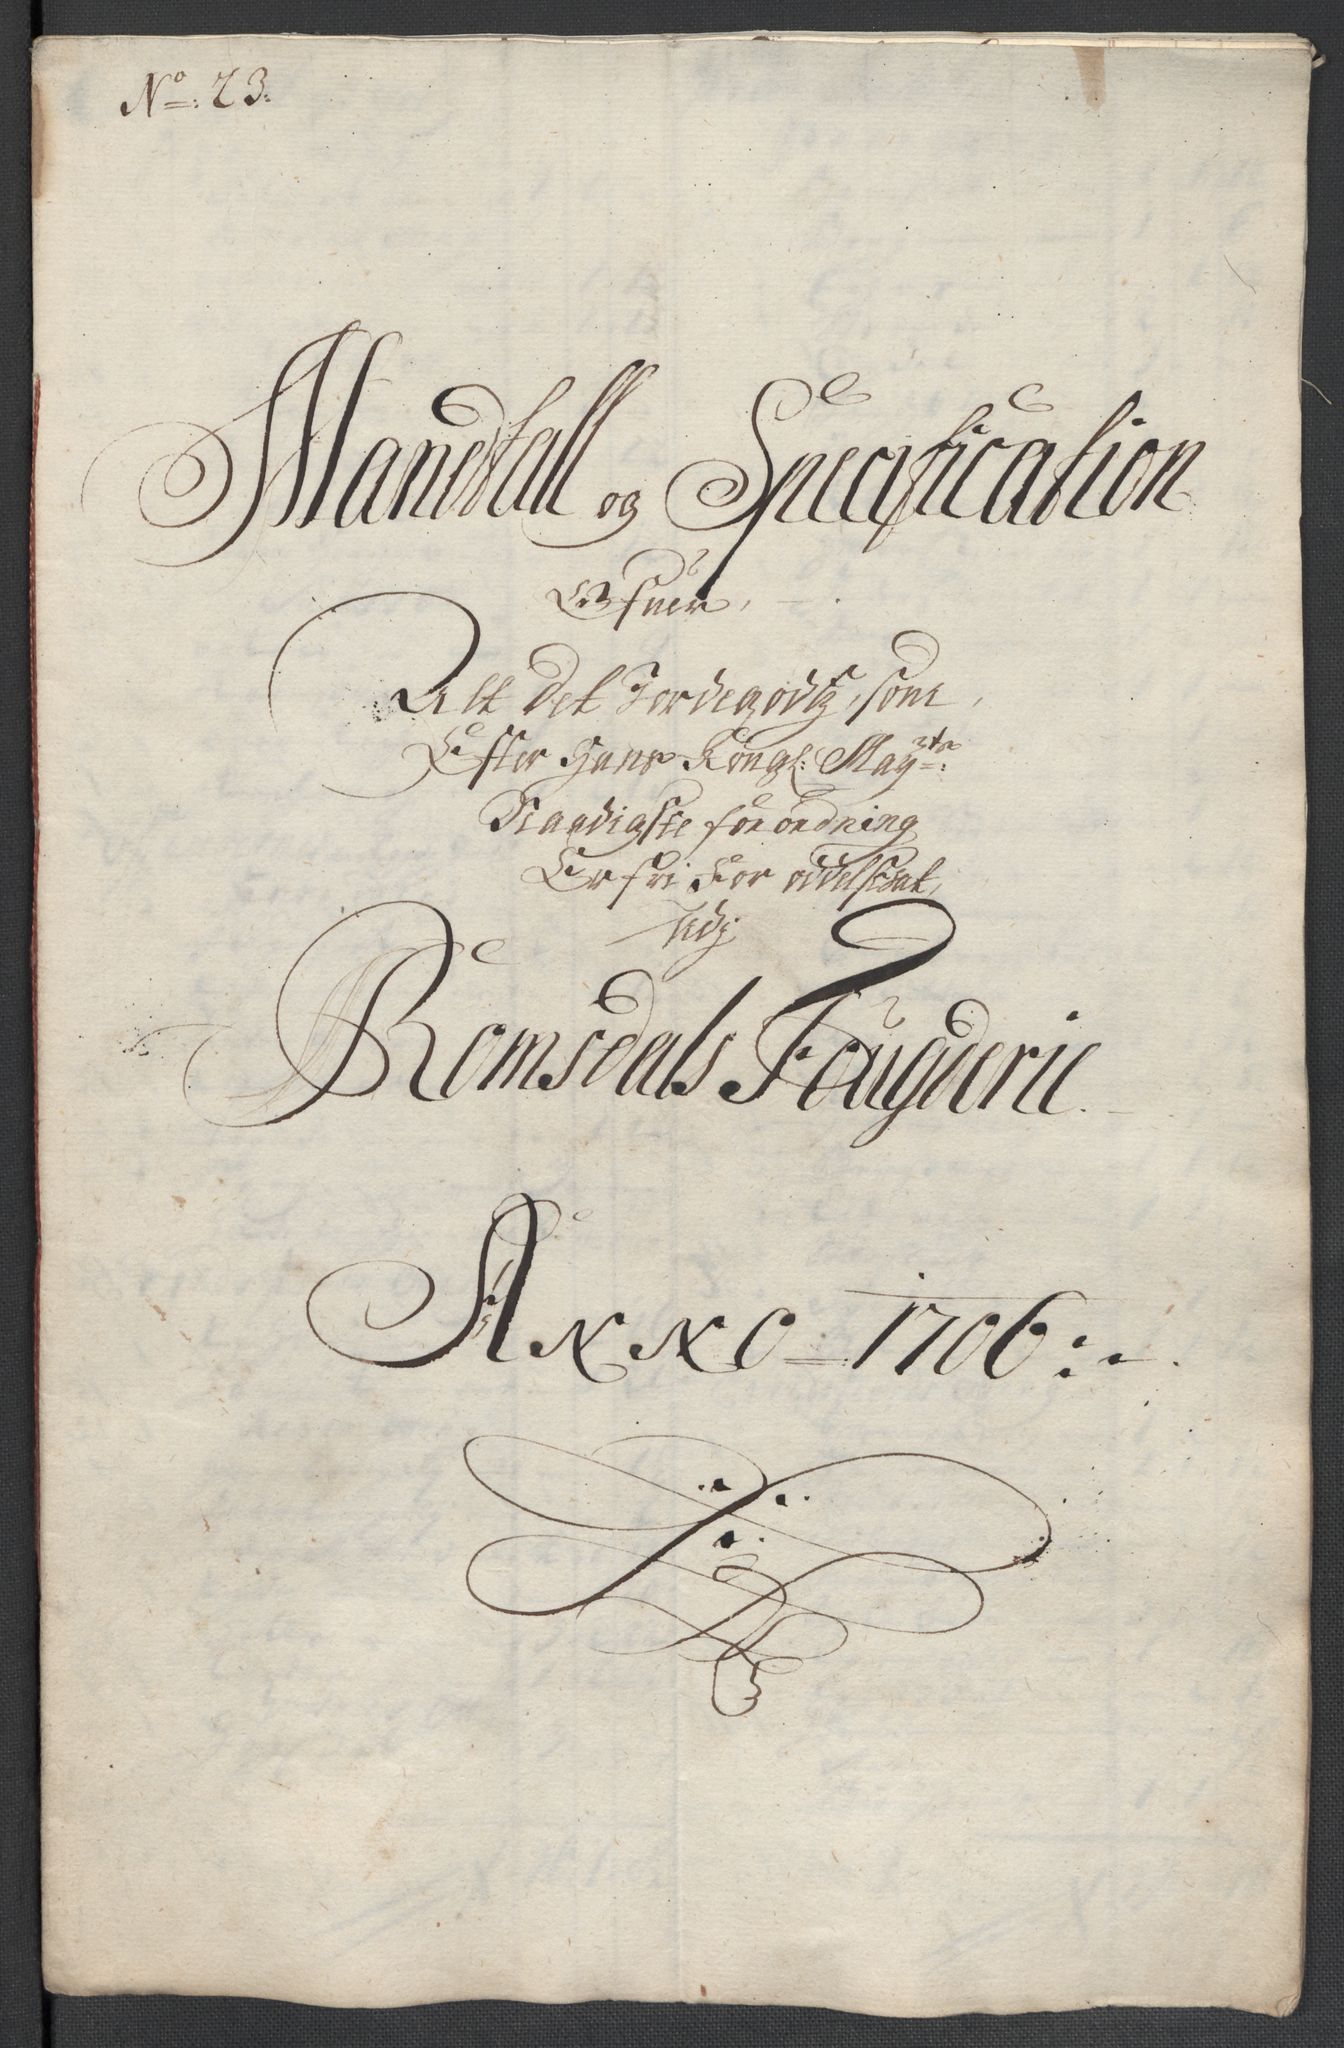 No: 23.
Mandtall og Specification
Ofuer,
Alt det Jordegodtz, som
Efter Hans Kongl: Mayts:
Naadigste forordning
Er fri for oddelsskat,
Udj
Romsdals Fougderie.
Anno 1706: